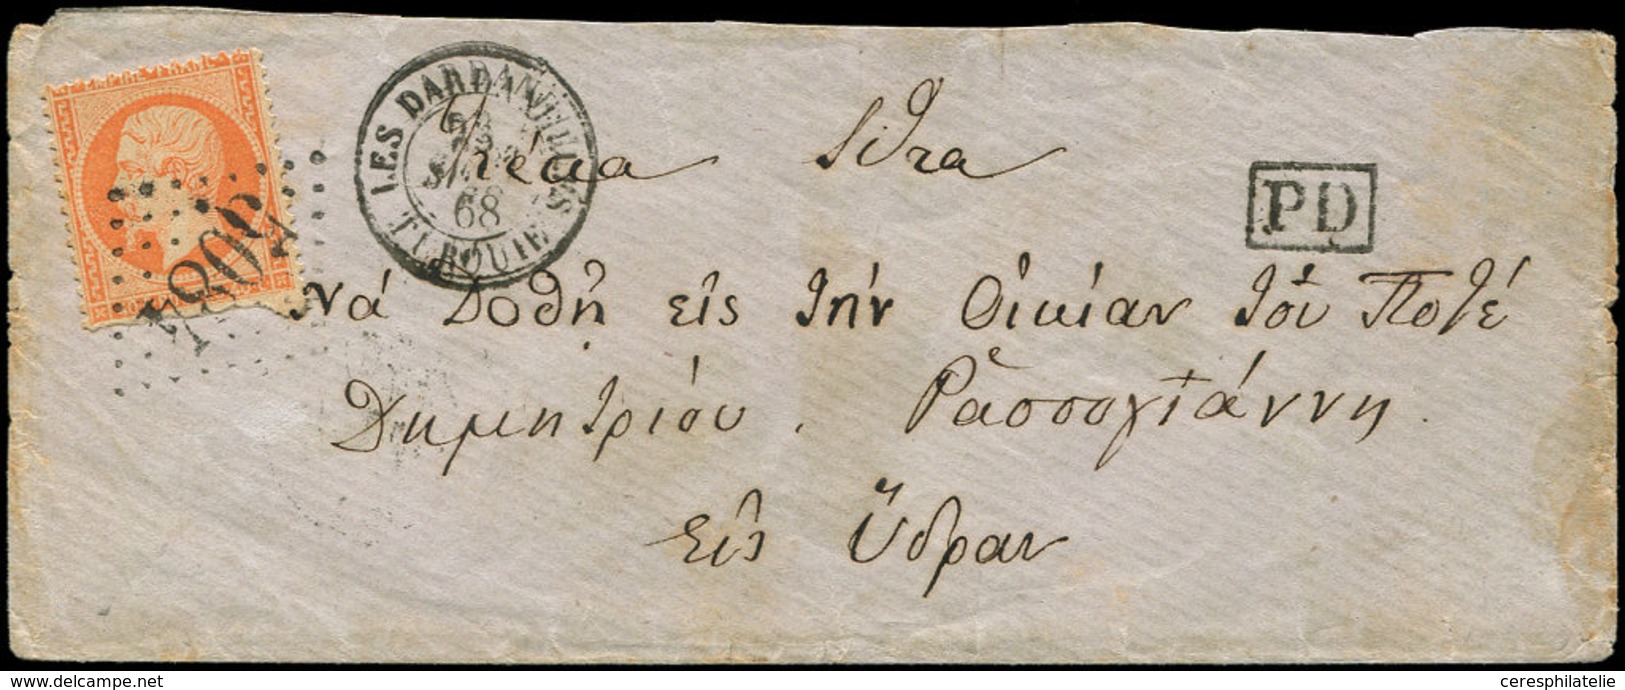 LES DARDANELLES
68
TURQUIE
PD
Νὰ Δοθῇ εἰς τὴν Οἰκίαν τοῦ Ποτέ
Δημητρίου. Ρασσογιάννη.
Εἰς Ὕδραν
delcampe.net
ceresphilatelie